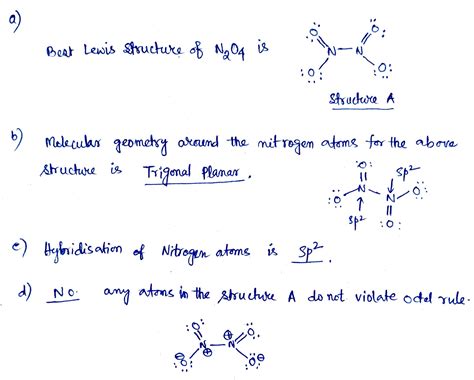 a)
Best Lewis Structure of N₂O₄ is
:O: :O:
N—N
:O: :O:
Structure A
b) Molecular geometry around the nitrogen atoms for the above
structure is Trigonal Planar.
:O: sp²
:O—N—N—O:
sp² :O:
c) Hybridisation of Nitrogen atoms is sp².
d) No. any atoms in the structure A do not violate octet rule.
:O: ⊕ O:
N—N
⊖ :O: ⊕ :O: ⊖